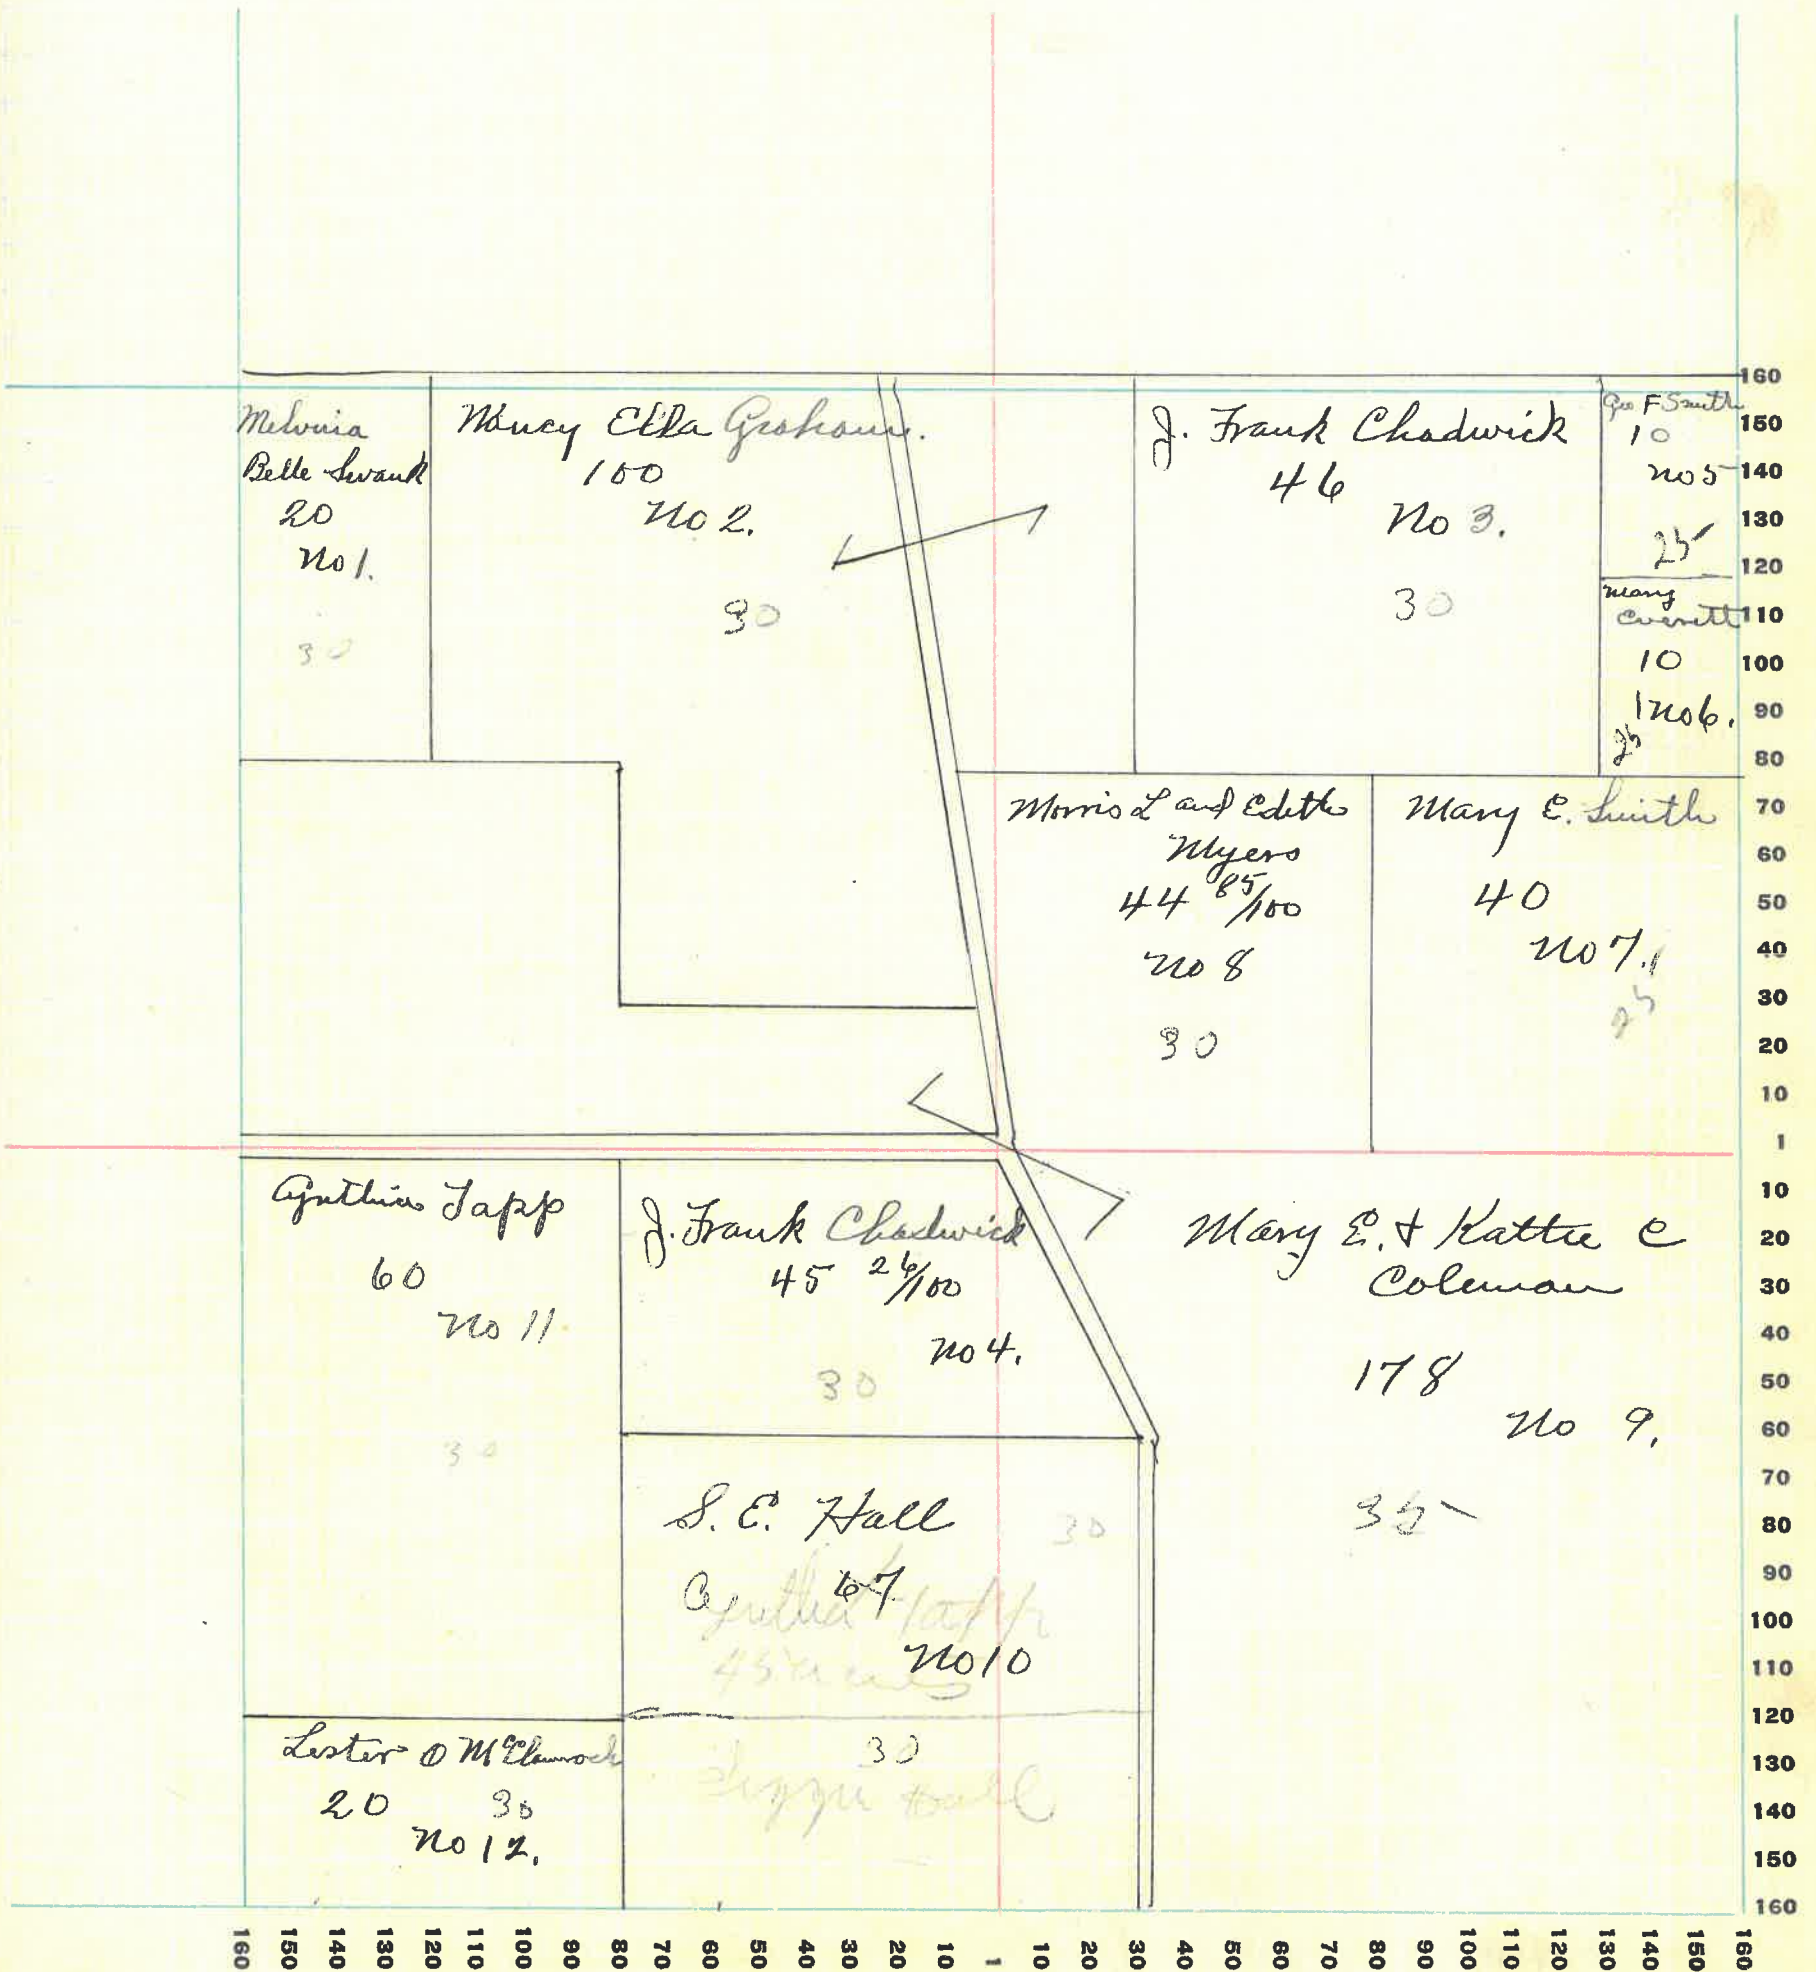 Melvina
Belle Swank
20
No 1.
30
Nancy Ella Graham.
100
No 2.
30
J. Frank Chadwick
46
No 3.
30
Geo F Smith
10
No 5
25
Mary
Everett
10
No 6.
25
Morris L and Edith
Myers
44 85/100
No 8
30
Mary E. Smith
40
No 7.
25
Cynthia Tapp
60
No 11
30
J. Frank Chadwick
45 26/100
No 4.
30
Mary E. & Kattie C
Coleman
178
No 9.
35
S. E. Hall
30
67
Cynthia Tapp
No 10
45 acres
30
Lizzie Hall
Lester O
20 30
No 12.
160
150
140
130
120
110
100
90
80
70
60
50
40
30
20
10
1
10
20
30
40
50
60
70
80
90
100
110
120
130
140
150
160
160 150 140 130 120 110 100 90 80 70 60 50 40 30 20 10 1 10 20 30 40 50 60 70 80 90 100 110 120 130 140 150 160